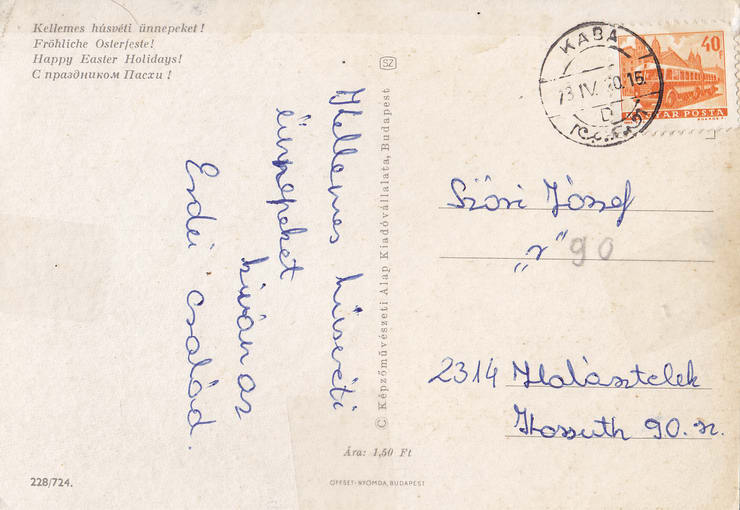 Kellemes húsvéti ünnepeket !
Fröhliche Osterfeste!
Happy Easter Holidays!
С праздником Пасхи !
Kellemes húsvéti
ünnepeket
kíván az
Erdei család.
SZ
© Képzőművészeti Alap Kiadóvállalata, Budapest
Ára: 1,50 Ft
228/724.
OFFSET-NYOMDA, BUDAPEST
KABA
73 IV. 20. 15
D
40 F
MAGYAR POSTA
Szősi József
„r" 90
2314 Halásztelek
Kossuth 90. sz.